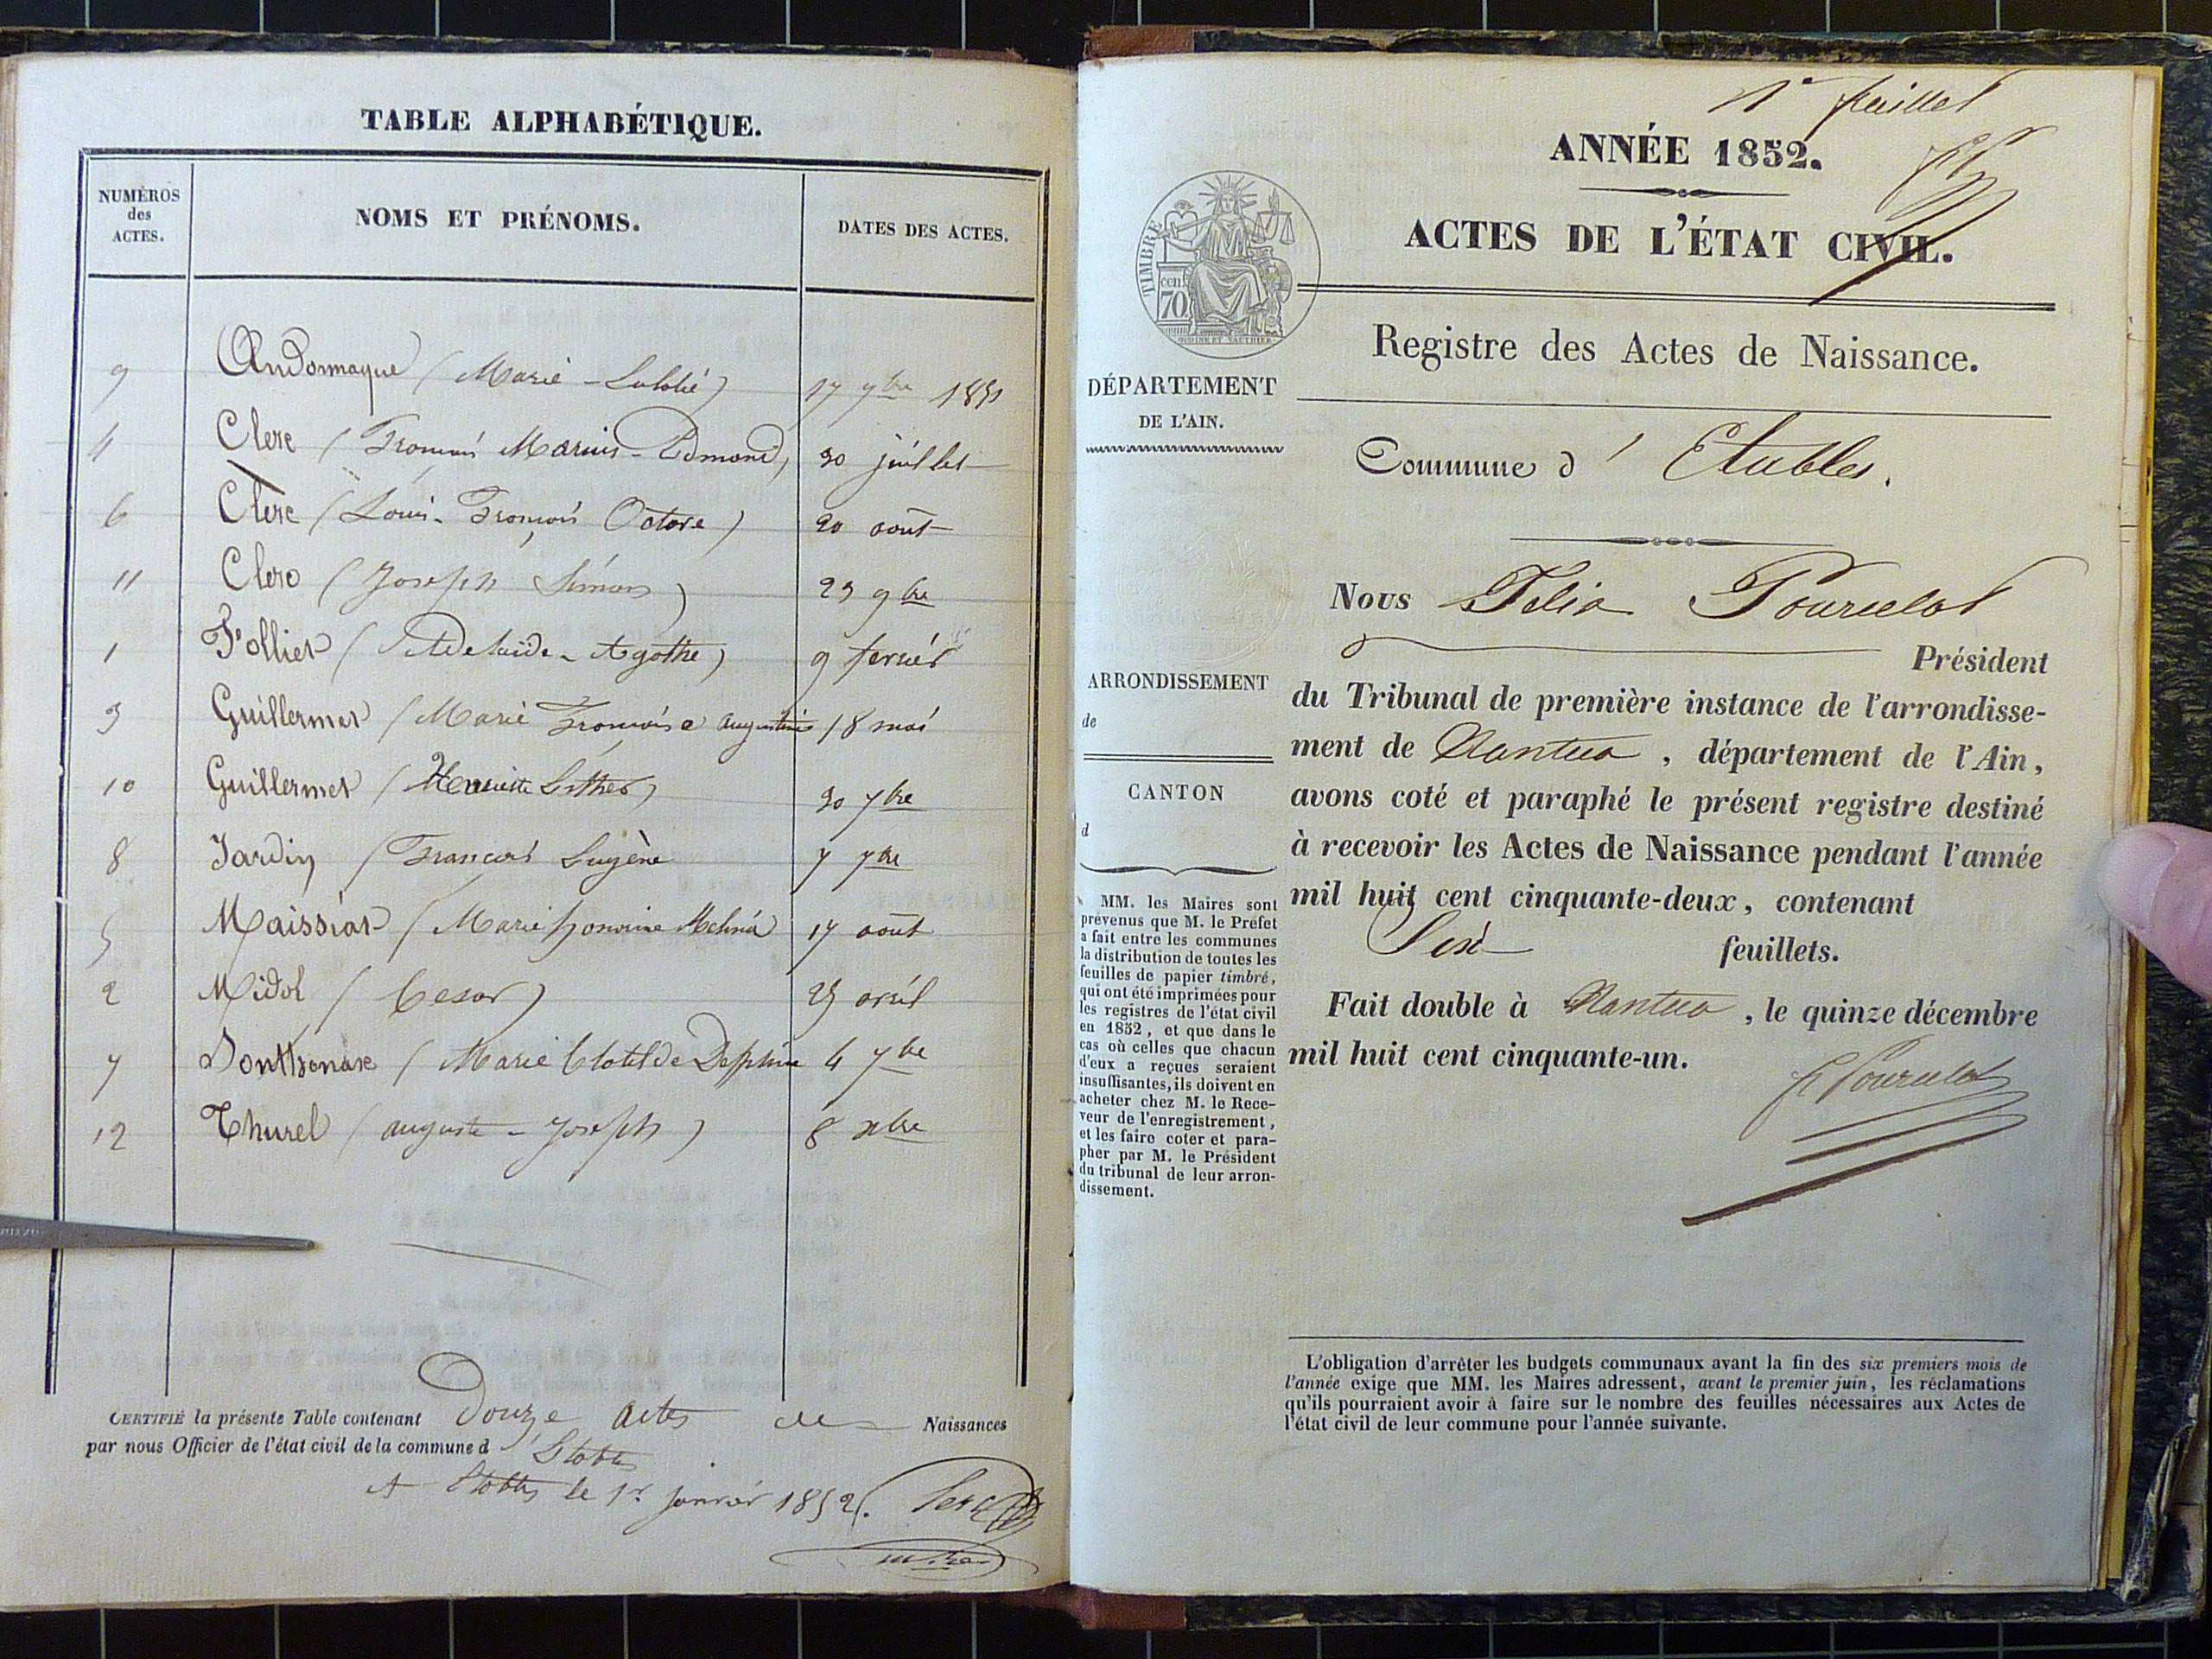 TABLE ALPHABÉTIQUE.
NUMÉROS
des
ACTES.
NOMS ET PRÉNOMS.
DATES DES ACTES.
9 Andromaque (Marie - ) 17 9bre 1851
4 Clerc (François Marius - Edmond) 30 juillet
6 Clerc (Louis - François Octave) 20 août
11 Clerc (Joseph Simon) 23 9bre
1 Follier (Adelaïde - Agathe) 9 fevrier
3 Guillermet (Marie Françoise augustine 18 mai
10 Guillermet (Henriette Esther) 30 7bre
8 Jardin (François Eugène 7 7bre
5 Maissiat (Marie honorine 17 août
2 Midol (Cesar) 25 avril
7 (Marie Clotilde Delphine 4 7bre
12 Thurel (auguste - Joseph) 8 xbre
CERTIFIÉ la présente Table contenant Douze actes de Naissances
par nous Officier de l'état civil de la commune d'Etables
A Etables le 1er janvier 1852.
1er feuillet
ANNÉE 1852.
ACTES DE L'ÉTAT CIVIL.
TIMBRE
cen.
70
Registre des Actes de Naissance.
DÉPARTEMENT
DE L'AIN.
Commune d' Etables.
Nous Félix Pourcelot
Président
du Tribunal de première instance de l'arrondisse-
ment de Nantua, département de l'Ain,
avons coté et paraphé le présent registre destiné
à recevoir les Actes de Naissance pendant l'année
mil huit cent cinquante-deux, contenant
Six feuillets.
Fait double à Nantua, le quinze décembre
mil huit cent cinquante-un.
F Pourcelot
ARRONDISSEMENT
de
CANTON
d
MM. les Maires sont
prévenus que M. le Préfet
a fait entre les communes
la distribution de toutes les
feuilles de papier timbré,
qui ont été imprimées pour
les registres de l'état civil
en 1852, et que dans le
cas où celles que chacun
d'eux a reçues seraient
insuffisantes, ils doivent en
acheter chez M. le Rece-
veur de l'enregistrement,
et les faire coter et para-
pher par M. le Président
du tribunal de leur arron-
dissement.
L'obligation d'arrêter les budgets communaux avant la fin des six premiers mois de
l'année exige que MM. les Maires adressent, avant le premier juin, les réclamations
qu'ils pourraient avoir à faire sur le nombre des feuilles nécessaires aux Actes de
l'état civil de leur commune pour l'année suivante.